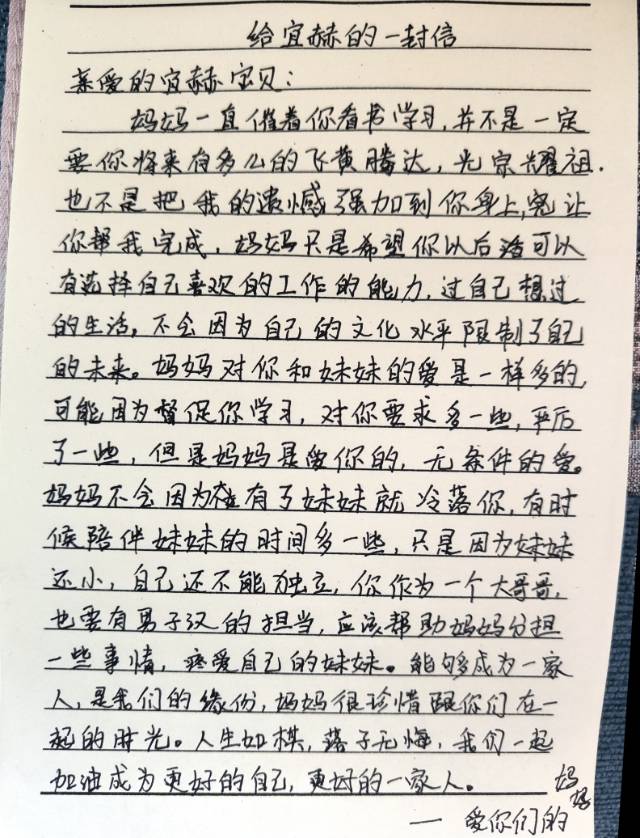 给宜赫的一封信
亲爱的宜赫宝贝：
妈妈一直催着你看书学习，并不是一定
要你将来有多么的飞黄腾达，光宗耀祖.
也不是把我的遗憾强加到你身上，让
你帮我完成，妈妈只是希望你以后活可以
有选择自己喜欢的工作的能力，过自己想过
的生活，不会因为自己的文化水平限制了自己
的未来。妈妈对你和妹妹的爱是一样多的，
可能因为督促你学习，对你要求多一些，严厉
了一些，但是妈妈是爱你的，无条件的爱。
妈妈不会因为有了妹妹就冷落你，有时
候陪伴妹妹的时间多一些，只是因为妹妹
还小，自己还不能独立，你作为一个大哥哥，
也要有男子汉的担当，应该帮助妈妈分担
一些事情，疼爱自己的妹妹。能够成为一家
人，是我们的缘份，妈妈很珍惜跟你们在一
起的时光。人生如棋，落子无悔，我们一起
加油成为更好的自己，更好的一家人。
——爱你们的妈妈